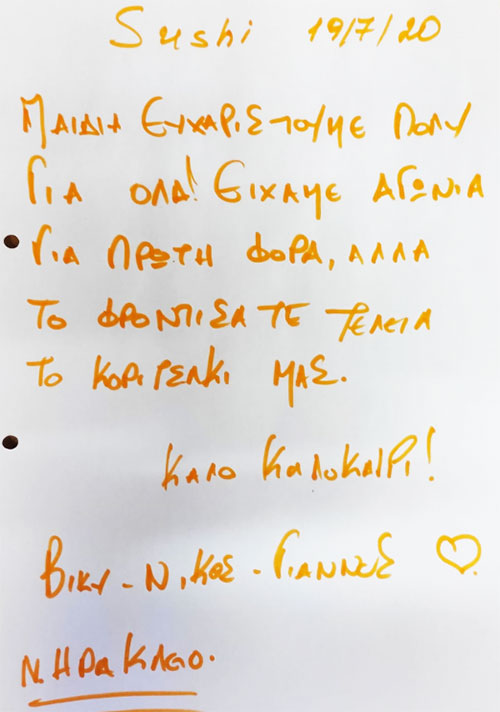 Sushi 19/7/20
ΜΑΙΔΗ ΕΥΧΑΡΙΣΤΟΥΜΕ ΠΟΛΥ
ΓΙΑ ΟΛΑ! ΕΙΧΑΜΕ ΑΓΩΝΙΑ
ΓΙΑ ΠΡΩΤΗ ΦΟΡΑ, ΑΛΛΑ
ΤΟ ΦΡΟΝΤΙΣΑΤΕ ΤΕΛΕΙΑ
ΤΟ ΚΟΡΙΤΣΑΚΙ ΜΑΣ.
ΚΑΛΟ ΚΑΛΟΚΑΙΡΙ!
ΒΙΚΥ - ΝΙΚΟΣ - ΓΙΑΝΝΗΣ
Ν. ΗΡΑΚΛΕΙΟ.